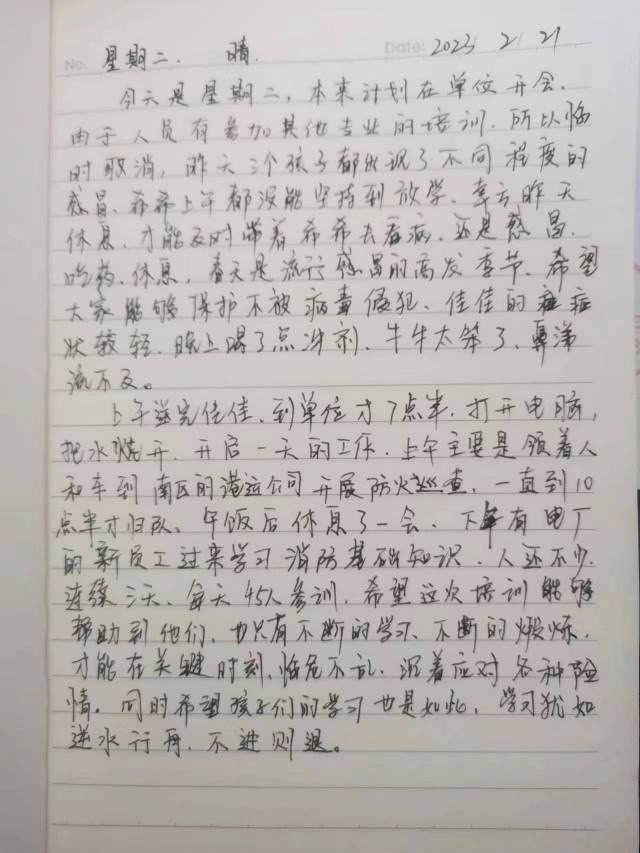 No. 星期二. 晴. Date: 2023 2 21
今天是星期二，本来计划在单位开会、
由于人员有参加其他专业的培训. 所以临
时取消，昨天三个孩子都出现了不同程度的
感冒、希希上午都没能坚持到放学、幸亏昨天
休息、才能及时带着希希去看病、还是感冒.
吃药、休息，春天是流行感冒的高发季节、希望
大家能够保护不被病毒侵犯、佳佳的症
状较轻、晚上喝了点冲剂、牛牛太笨了、鼻涕
流不及。
上午送完佳佳、到单位才7点半. 打开电脑，
把水烧开、开启一天的工作. 上午主要是领着人
和车到南区的港运公司开展防火巡查、一直到10
点半才归队、午饭后休息了一会、下午有电厂
的新员工过来学习消防基础知识、人还不少.
连续3天、每天45人参训，希望这次培训能够
帮助到他们、也只有不断的学习、不断的煅烁.
才能在关键时刻、临危不乱、沉着应对各种险
情. 同时希望孩子们的学习也是如此，学习犹如
逆水行舟、不进则退。